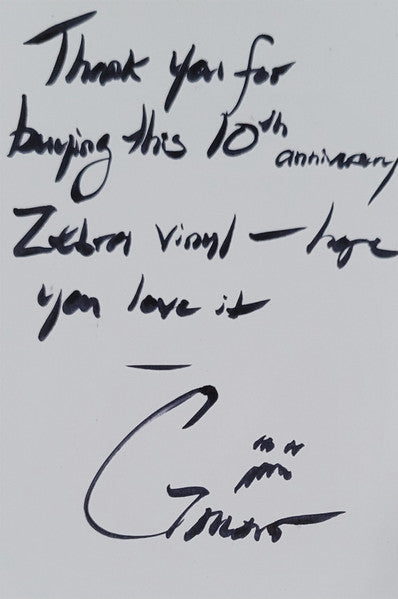 Thank you for
buying this 10th anniversary
Zebra vinyl — hope
you love it
—